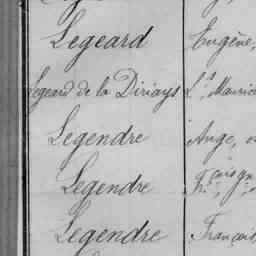 Legeard Eugène,
Legeard de la Diriays Ls. Mauric
Legendre Ange, ou
Legendre Frçois
Legendre François,